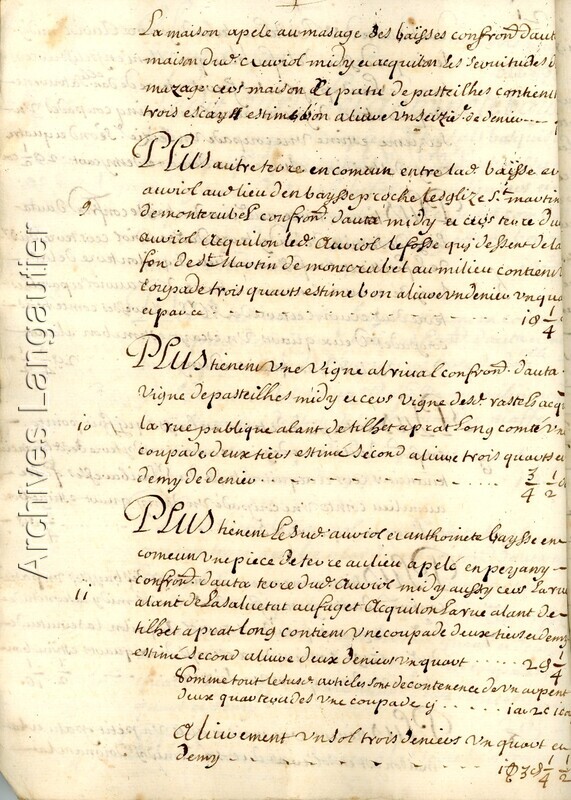 La maison apelé au masage des baÿsses confron.t d'aut
maison dud. auviol midy et acquilon les servitudes
mazage cers maison et patu de pasteilhes contient
trois escatz estimé bon alivré un seizie.e de denier
PLUS autre terre en comeun entre lad. baÿsse et
auviol aud. lieu den baysse proche lesglize St. martin
9
de monterabel confron.t d'auta midy et cers terre du
auviol acquilon led. auviol le fossé qui dessent de la
fon de St. Martin de monterabel au milieu contient
coupade trois quarts estimé bon alivré un denier un qua
et pance 1 d 1/4
PLUS tienent une vigne al rival confron.t d'auta
vigne de pasteilhes midy et cers vigne de sr. rastels acq
10
la rue publique alant de tilhet a prat long contient un
coupade deux tiers estimé second alivré trois quarts et
demy de denier 3/4 1/2 d
PLUS tienent le sud. auviol et anthoinete baysse en
comeun une piece de terre au lieu apelé en peyany
confron.t d'auta terre dud. auviol midy aussy cers la rue
11
alant de Lasalvetat au faget acquilon la rue alant de
tilhet a prat long contient une coupade deux tiers et demy
estimé second alivré deux deniers un quart 2 d 1/4
Somme tout le susd. articles sont de contenence de un arpent
deux quarterades une coupade cy 1 a 2 c
Alivrement un sol trois deniers un quart et
demy 1 s 3 d 1/4 1/2
Archives Langautier